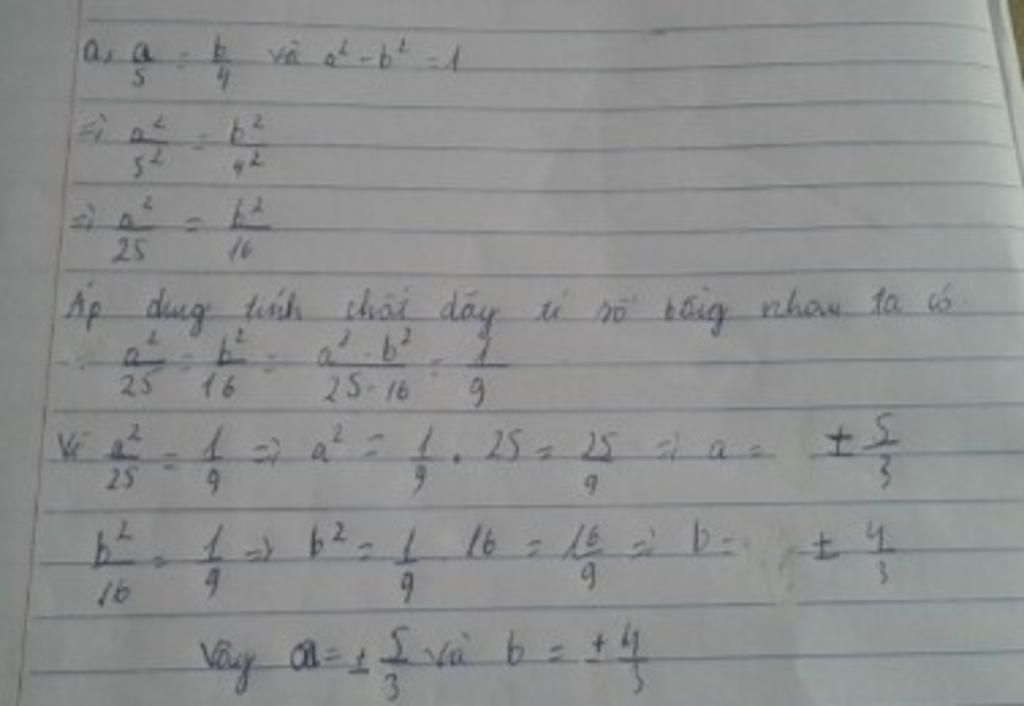 a, a/5 = b/4 và a² - b² = 1
=> a²/5² = b²/4²
=> a²/25 = b²/16
Áp dụng tính chất dãy tỉ số bằng nhau ta có
a²/25 = b²/16 = a² - b²/25 - 16 = 1/9
Vì a²/25 = 1/9 => a² = 1/9 . 25 = 25/9 => a = ± 5/3
b²/16 = 1/9 => b² = 1/9 16 = 16/9 => b = ± 4/3
Vậy a = ± 5/3 và b = ± 4/3